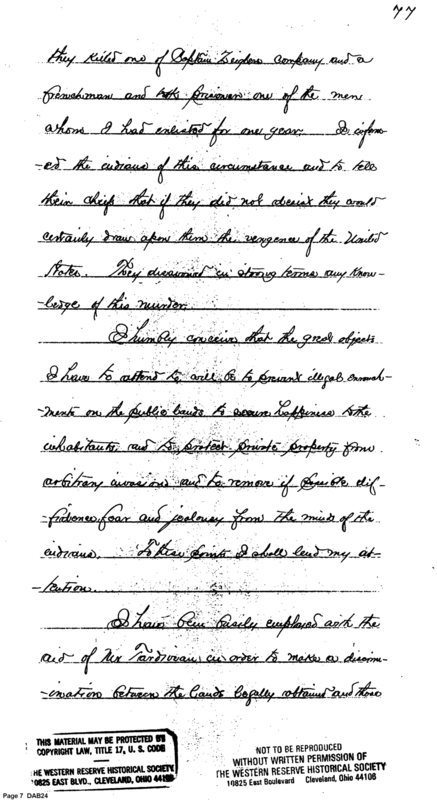 77
they killed one of Captain Zeiglers company and a
frenchman and took prisoner one of the men
whom I had enlisted for one year. I inform-
-ed the indians of this circumstance and to tell
their chiefs that if they did not desist they would
certainly draw upon them the vengence of the United
States. They disavowed in strong terms any know-
-ledge of this murder.
I humbly conceive that the great objects
I have to attend to will be to prevent illegal encroach-
-ments on the public lands to secure happiness to the
inhabitants and to protect private property from
arbitrary invasions and to remove if possible dif-
-fidence fear and jealousy from the minds of the
indians. To these points I shall lend my at-
-tention.
I have been busily employed with the
aid of Mr Tardiveau in order to make a discrim-
-ination between the lands legally obtained and those
THIS MATERIAL MAY BE PROTECTED BY
COPYRIGHT LAW, TITLE 17, U. S. CODE
THE WESTERN RESERVE HISTORICAL SOCIETY
10825 EAST BLVD., CLEVELAND, OHIO 44106
NOT TO BE REPRODUCED
WITHOUT WRITTEN PERMISSION OF
THE WESTERN RESERVE HISTORICAL SOCIETY
10825 East Boulevard Cleveland, Ohio 44106
Page 7 DAB24